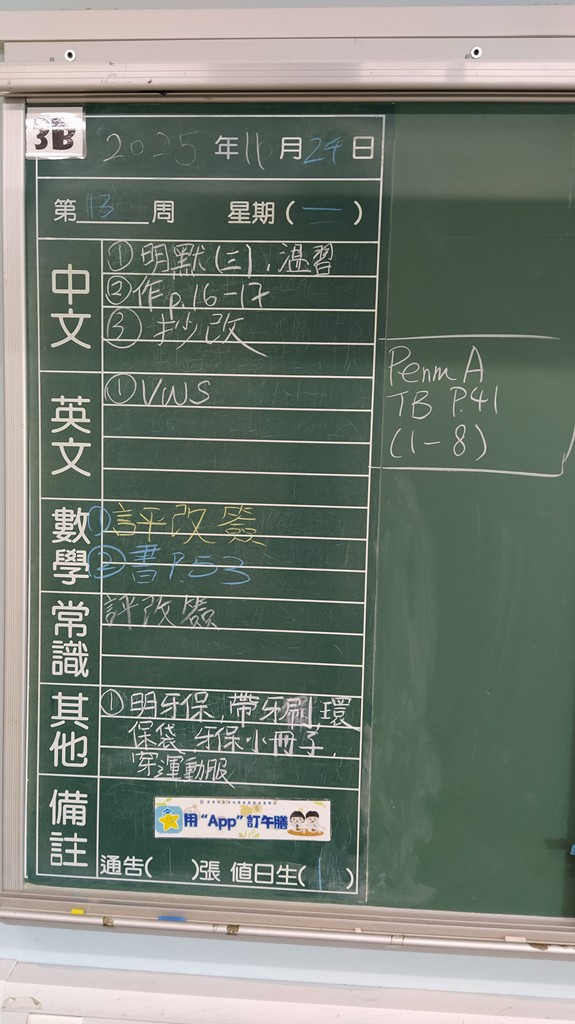 3B
2025年11月24日
第13周 星期(一)
中文
①明默(三),溫習
②作p.16-17
③抄改
英文
①VWS
數學
①評改簽
②書P.53
常識
評改簽
其他
①明牙保,帶牙刷,環
保袋,牙保小冊子,
穿運動服
備註
用“App”訂午膳
通告( )張 值日生(1)
Penm A
TB P.41
(1-8)